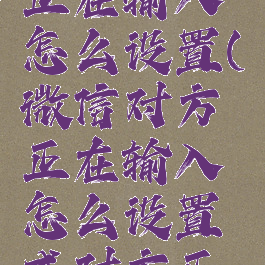 正在输入
怎么设置(
微信对方
正在输入
怎么设置